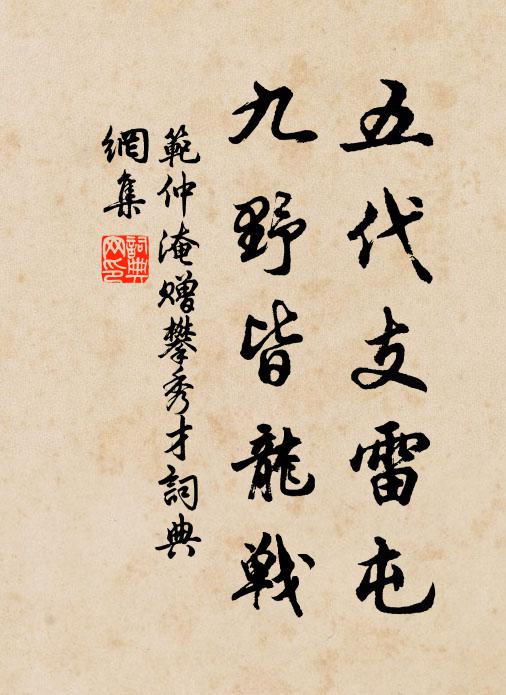 五代支雷屯
九野皆龍戰
範仲淹贈攀秀才詞典
網集
詞典网印